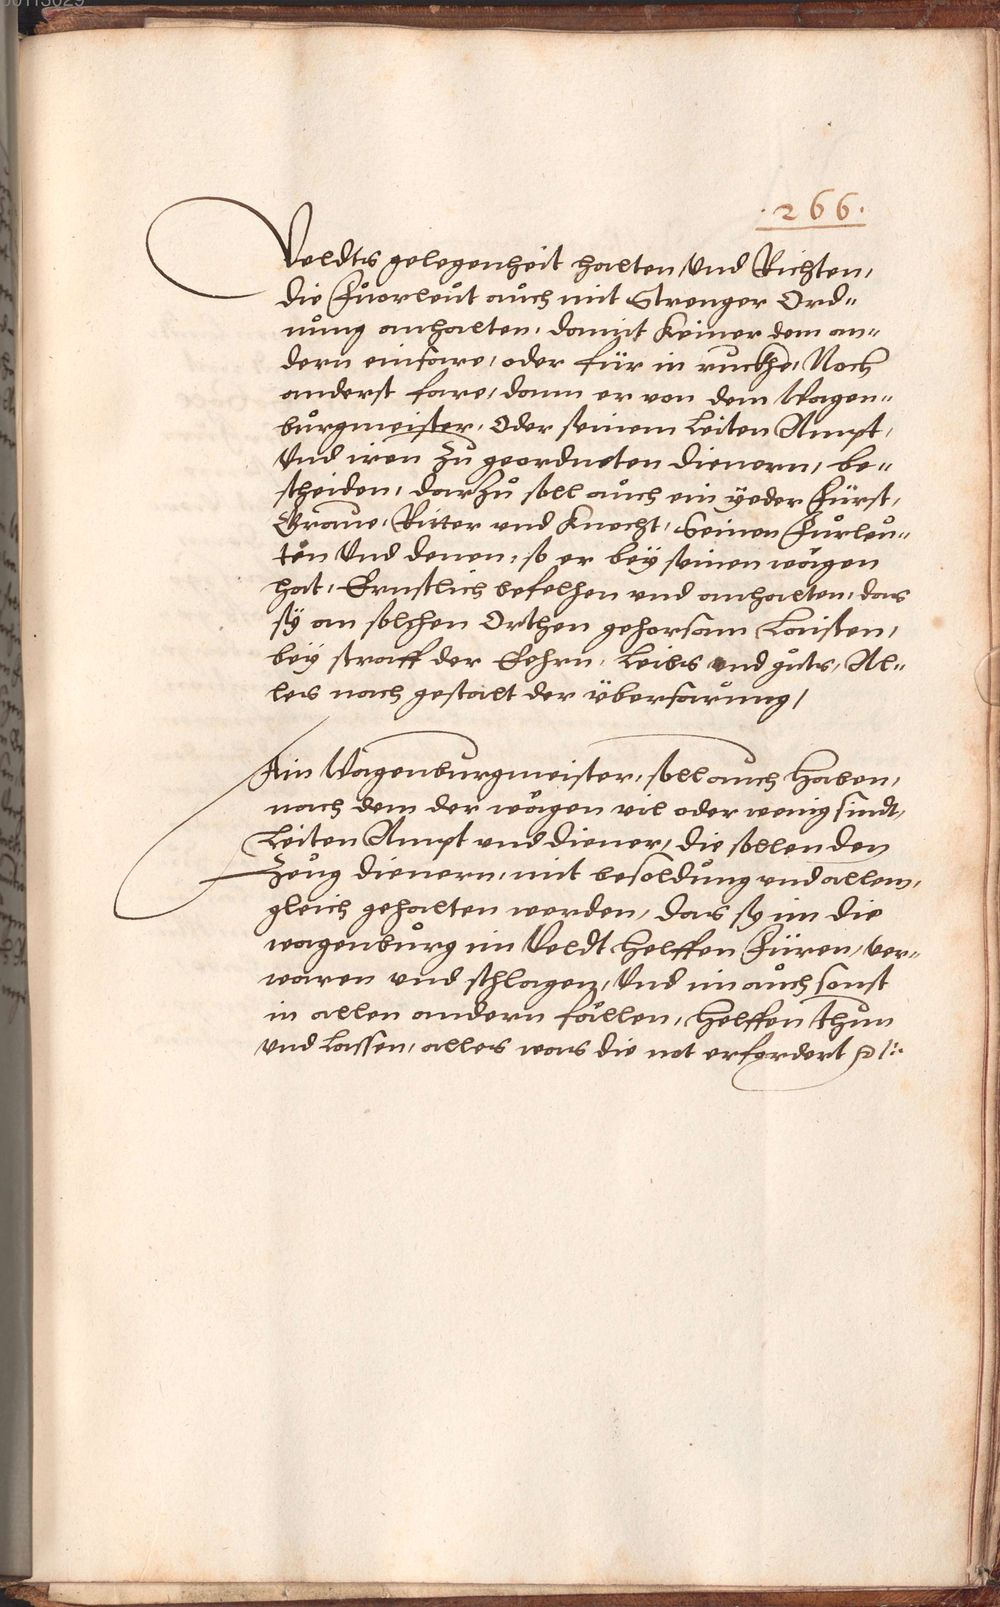 .266.
Veldts gelegenheit halten, Und Richten,
die Fuorleut auch mit Strenger Ord„
nung anhalten, damit Keiner dem an„
dern einfare, oder für in ruckhe, Noch
anderst fare, dann er von dem Wagen„
burgmeister, Oder seinem Leiten Ampt,
Und iren Zu geordneten dienern, be„
scheiden, darzu soll auch ein yeder Fürst,
Graue, Ritter vnd Knecht, Seinen Fuorleu„
ten Und denen, so er bey seinen wägen
hat, Ernstlich befelhen vnd anhalten, das
sy an solchen Orthen gehorsam Laisten,
bey straff der Eehrn, Leibs vnd guts, Al„
les nach gestalt der überfarung,
Ain Wagenburgmeister, soll auch Haben,
nach dem der wägen vil oder wenig sindt,
Leiten Ampt vnd diener, die sollen den
Zeug dienern, mit besoldung vnd allem,
gleich gehalten werden, das sy im die
wagenburg im Veldt Helffen Füren, ver„
waren vnd schlagen, Und im auch sonst
in allen andern fällen, Helffen thun
vnd Lassen, alles was die not erfordert